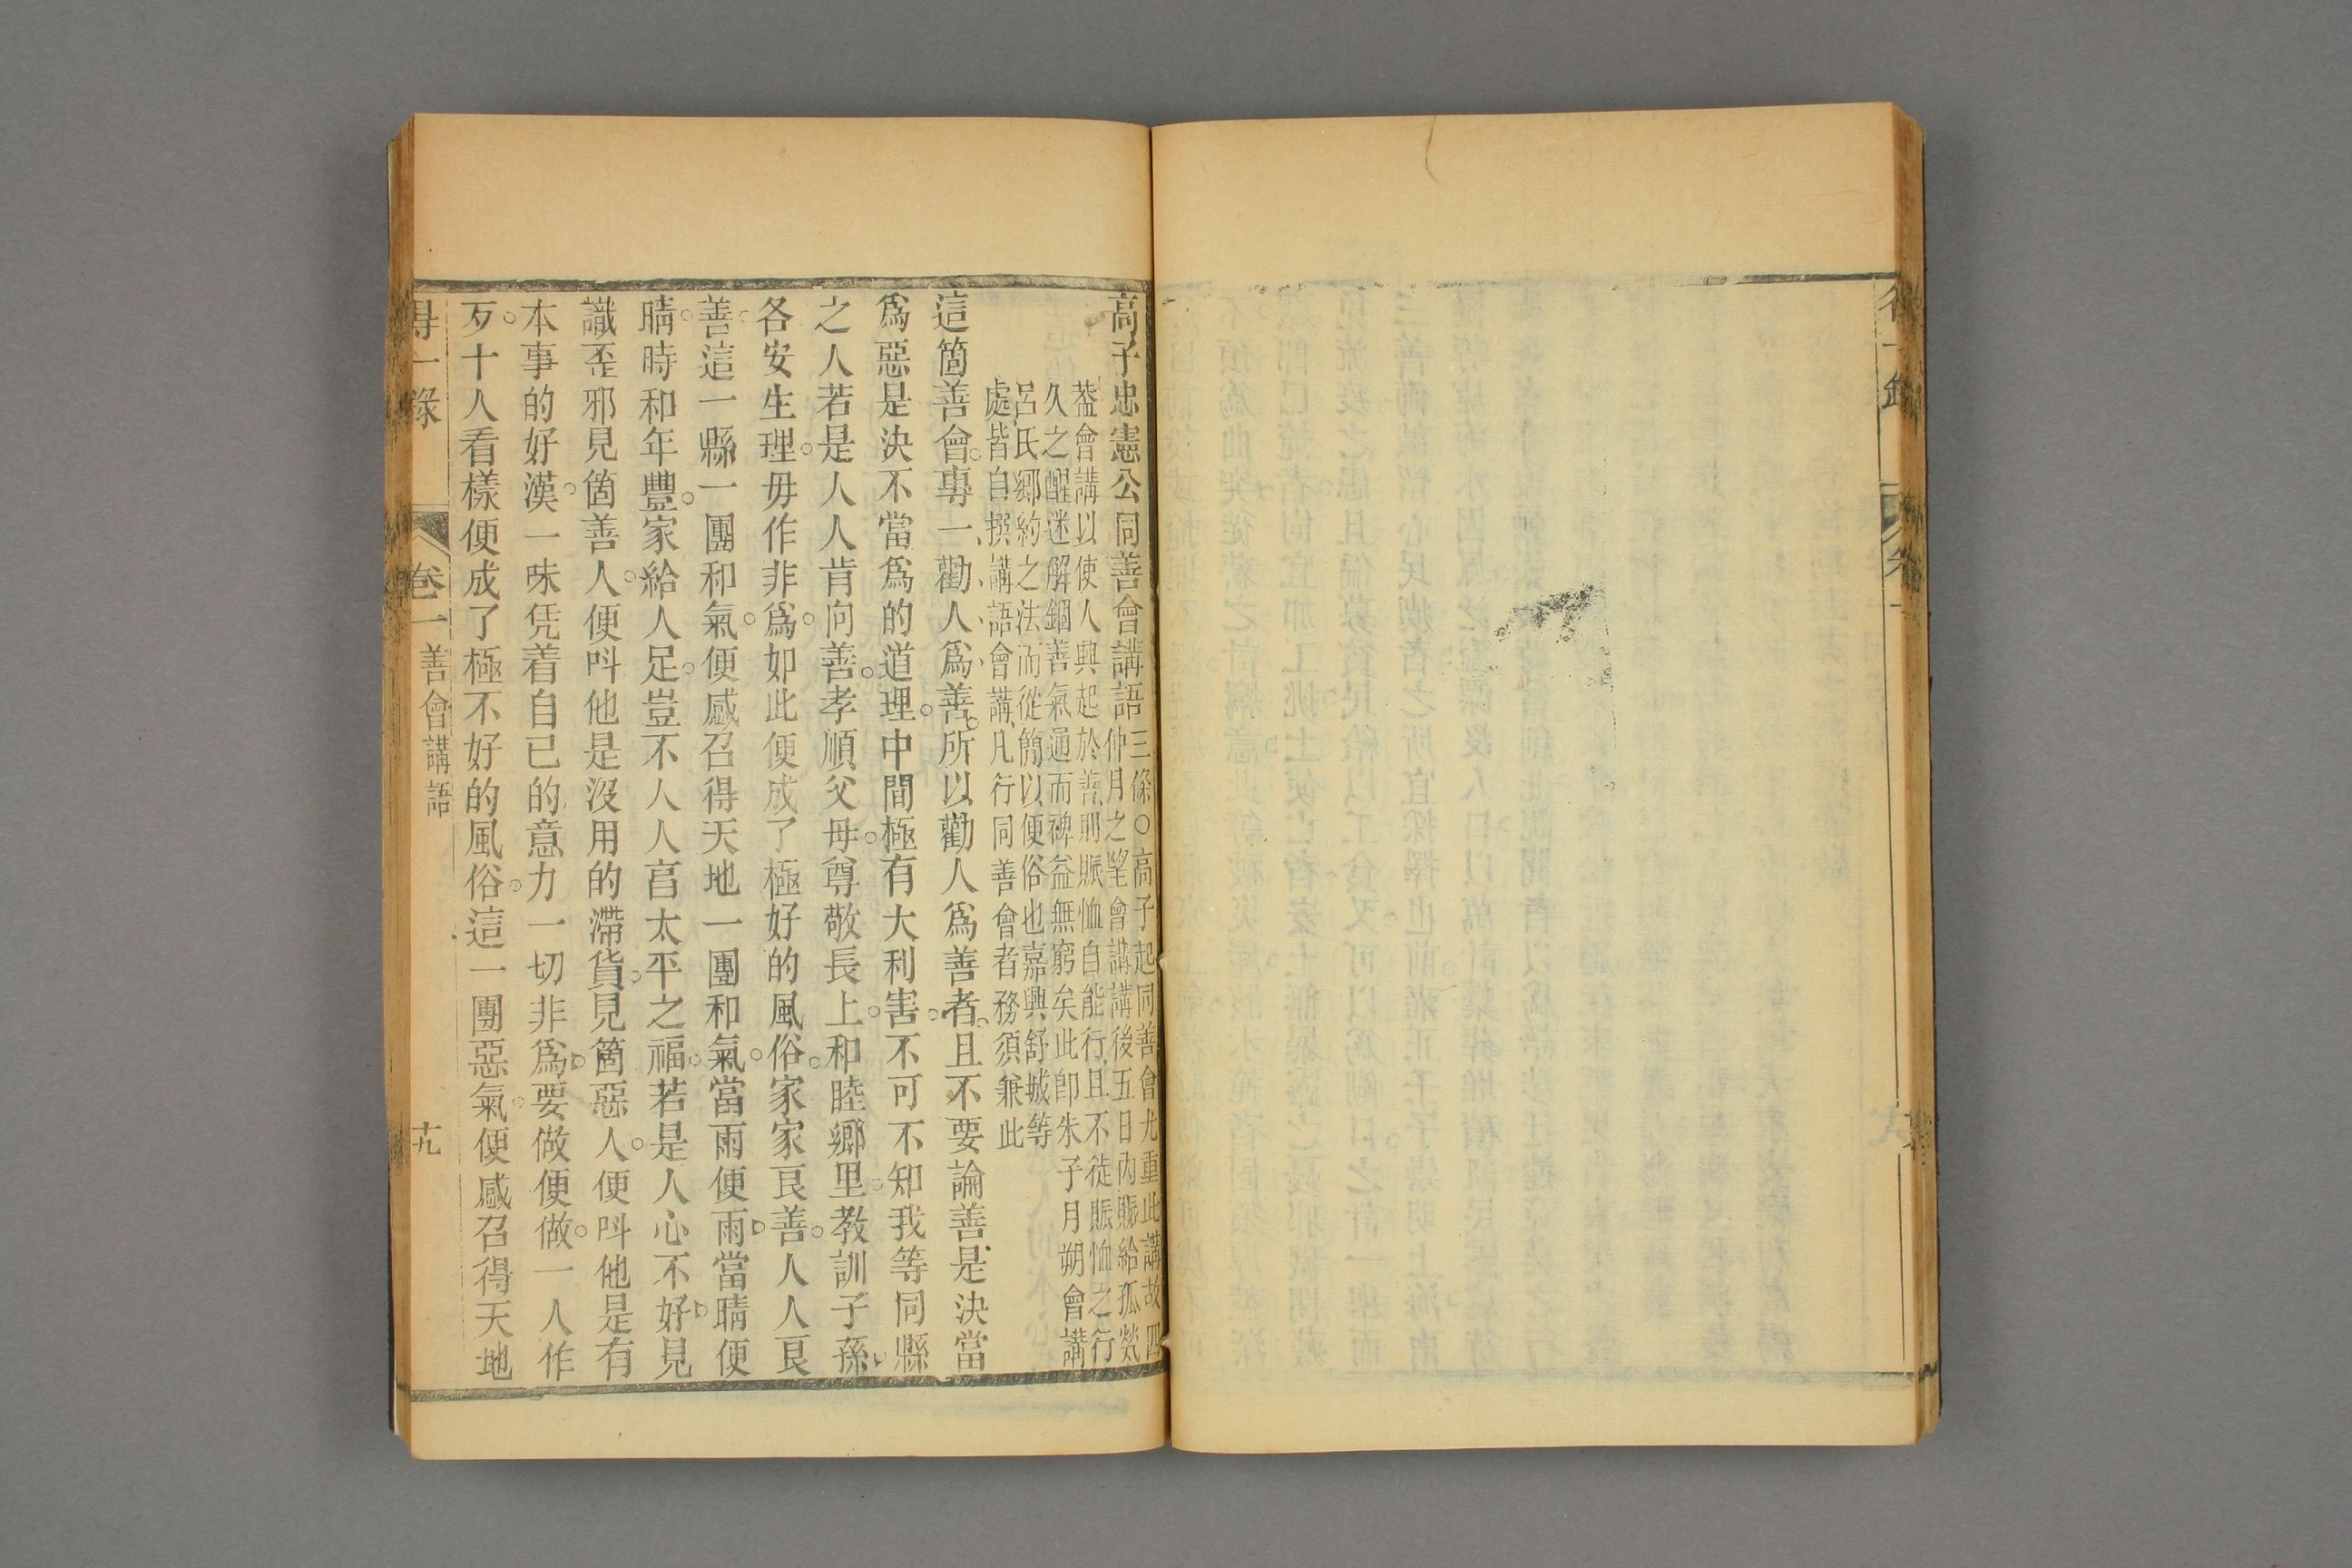 高子忠憲公同善會講語
三條○高子起同善會尤重此講故四
仲月之望會講講後五日內賑給孤煢
葢會講以使人興起於善則賑恤自能行且不徒賑恤之行
久之醒迷解錮善氣通而裨益無窮矣此卽朱子月朔會講
呂氏鄉約之法而從簡以便俗也嘉興舒城等
處皆自撰講語會講凡行同善會者務須兼此
這箇善會專一勸人爲善所以勸人爲善者且不要論善是決當
爲惡是決不當爲的道理中間極有大利害不可不知我等同縣
之人若是人人肯向善孝順父母尊敬長上和睦鄉里教訓子孫
各安生理毋作非爲如此便成了極好的風俗家家良善人人良
善這一縣一團和氣便感召得天地一團和氣當雨便雨當晴便
晴時和年豐家給人足豈不人人享太平之福若是人心不好見
識歪邪見箇善人便呌他是沒用的滯貨見箇惡人便呌他是有
本事的好漢一味凭着自已的意力一切非爲要做便做一人作
歹十人看樣便成了極不好的風俗這一團惡氣便感召得天地
得一錄 卷一 善會講語 十九